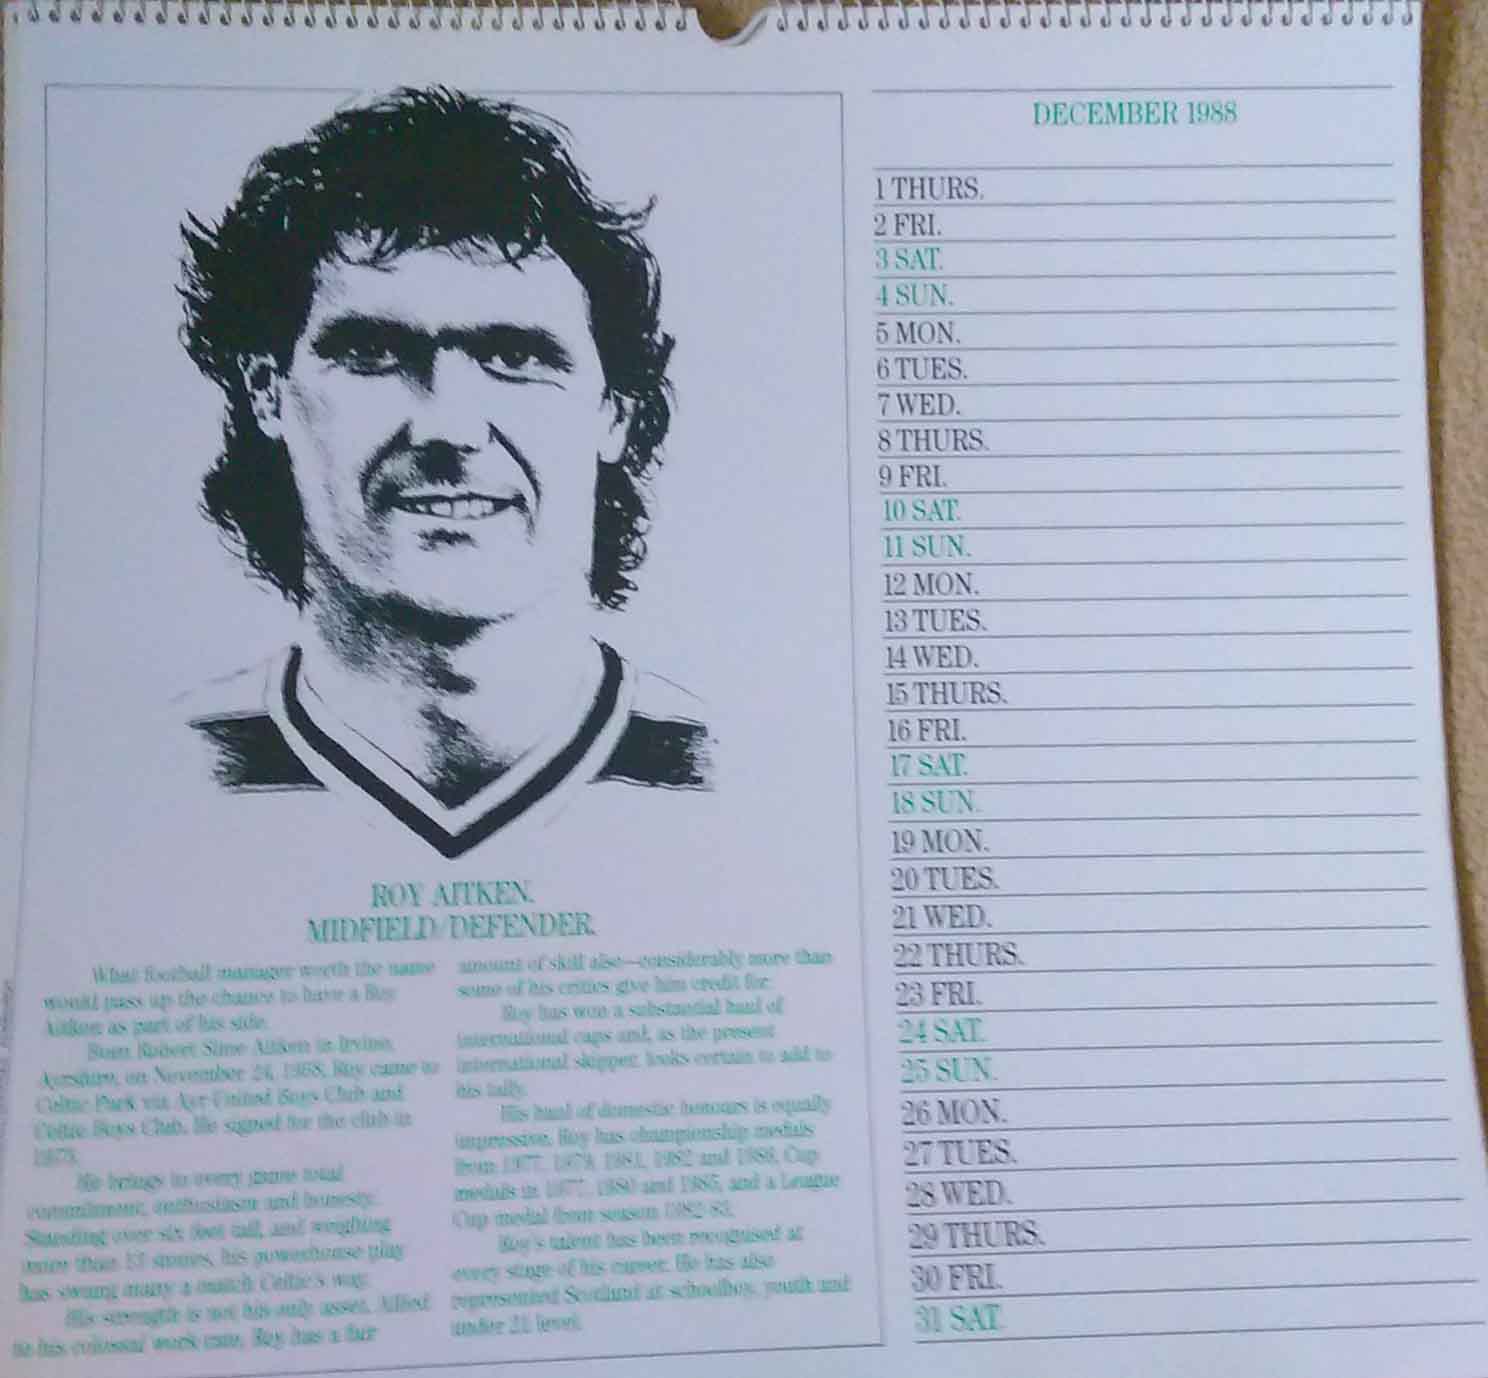 ROY AITKEN.
MIDFIELD/DEFENDER.
What football manager worth the name
would pass up the chance to have a Roy
Aitken as part of his side.
Born Robert Sime Aitken in Irvine,
Ayrshire, on November 24, 1958, Roy came to
Celtic Park via Ayr United Boys Club and
Celtic Boys Club. He signed for the club in
He brings to every game total
commitment, enthusiasm and honesty.
Standing over six feet tall, and weighing
more than 13 stones, his powerhouse play
has swung many a match Celtic's way.
His strength is not his only asset. Allied
to his colossal work rate, Roy has a fair
amount of skill also—considerably more than
some of his critics give him credit for.
Roy has won a substantial haul of
international caps and, as the present
international skipper, looks certain to add to
his tally.
His haul of domestic honours is equally
impressive. Roy has championship medals
from 1977, 1979, 1981, 1982 and 1986, Cup
medals in 1977, 1980 and 1985, and a League
Cup medal from season 1982-83.
Roy's talent has been recognised at
every stage of his career. He has also
represented Scotland at schoolboy, youth and
under 21 level.
DECEMBER 1988
1 THURS.
2 FRI.
3 SAT.
4 SUN.
5 MON.
6 TUES.
7 WED.
8 THURS.
9 FRI.
10 SAT.
11 SUN.
12 MON.
13 TUES.
14 WED.
15 THURS.
16 FRI.
17 SAT.
18 SUN.
19 MON.
20 TUES.
21 WED.
22 THURS.
23 FRI.
24 SAT.
25 SUN.
26 MON.
27 TUES.
28 WED.
29 THURS.
30 FRI.
31 SAT.